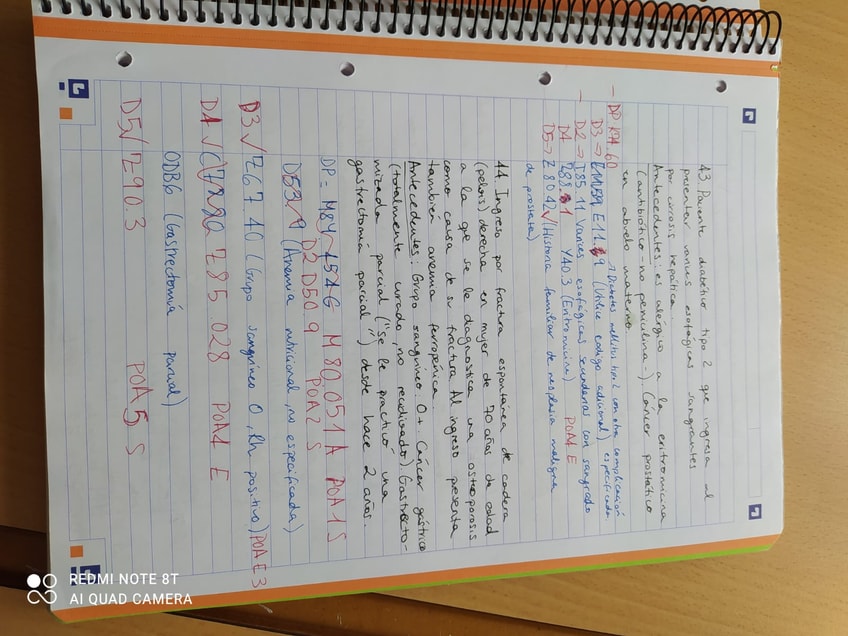 43 Paciente diabético tipo 2 que ingresa al
presentar varices esofágicas sangrantes
por cirosis hepática.
Antecedentes: es alérgico a la eritromicina
(antibiótico - no penicilina-). Cáncer prostático
en abuelo materno
- DP K74.60
→ Diabetes mellitus tipo 2 con otra complicación especificada
D3 → E11 (Utilice código adicional)
- D2 → I85.11 Varices esofágicas secundarias con sangrado
D4 Z88.1 Y40.3 (Eritromicina) POA4 E
D5 → Z80.42 √ (Historia familiar de neoplasia maligna
de próstata)
44 Ingreso por fractura espontánea de cadera
(pelvis) derecha en mujer de 70 años de edad
a la que se le diagnostica una osteoporosis
como causa de su fractura. Al ingreso presenta
también anemia ferropénica.
Antecedentes: Grupo sanguíneo: 0+ Cáncer gástrico
(totalmente curado, no recidivado). Gastrecto-
mizada parcial ("se le practicó una
gastrectomía parcial") desde hace 2 años.
DP = M84 M80.051A POA1 S
D2 D50.9 POA2 S
D53.9 (Anemia nutricional, no especificada)
D3 √ Z67.40 (Grupo sanguíneo 0, Rh positivo) POA E3
D4 √ Z85.028 POA4 E
0DB6 (Gastrectomía parcial)
D5 √ Z90.3 POA5 S
REDMI NOTE 8T
AI QUAD CAMERA